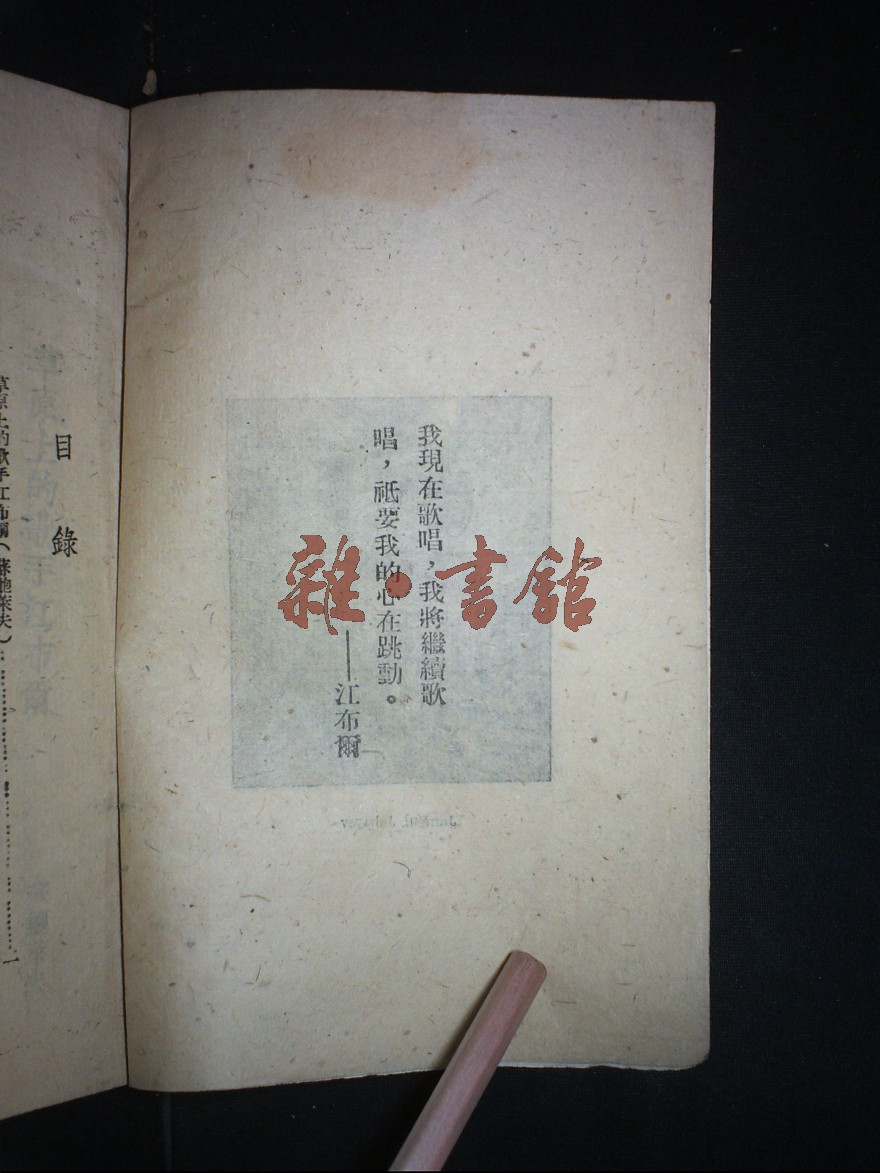 我現在歌唱，我將繼續歌
唱，祇要我的心在跳動。
——江布爾
雜·書館
目錄
草原上的歌手江布爾（蘇鮑萊夫）
一